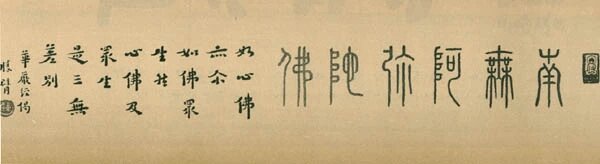 南無阿弥陀佛
如心佛
亦尒
如佛眾
生然
心佛及
眾生
是三無
差別
華嚴經偈